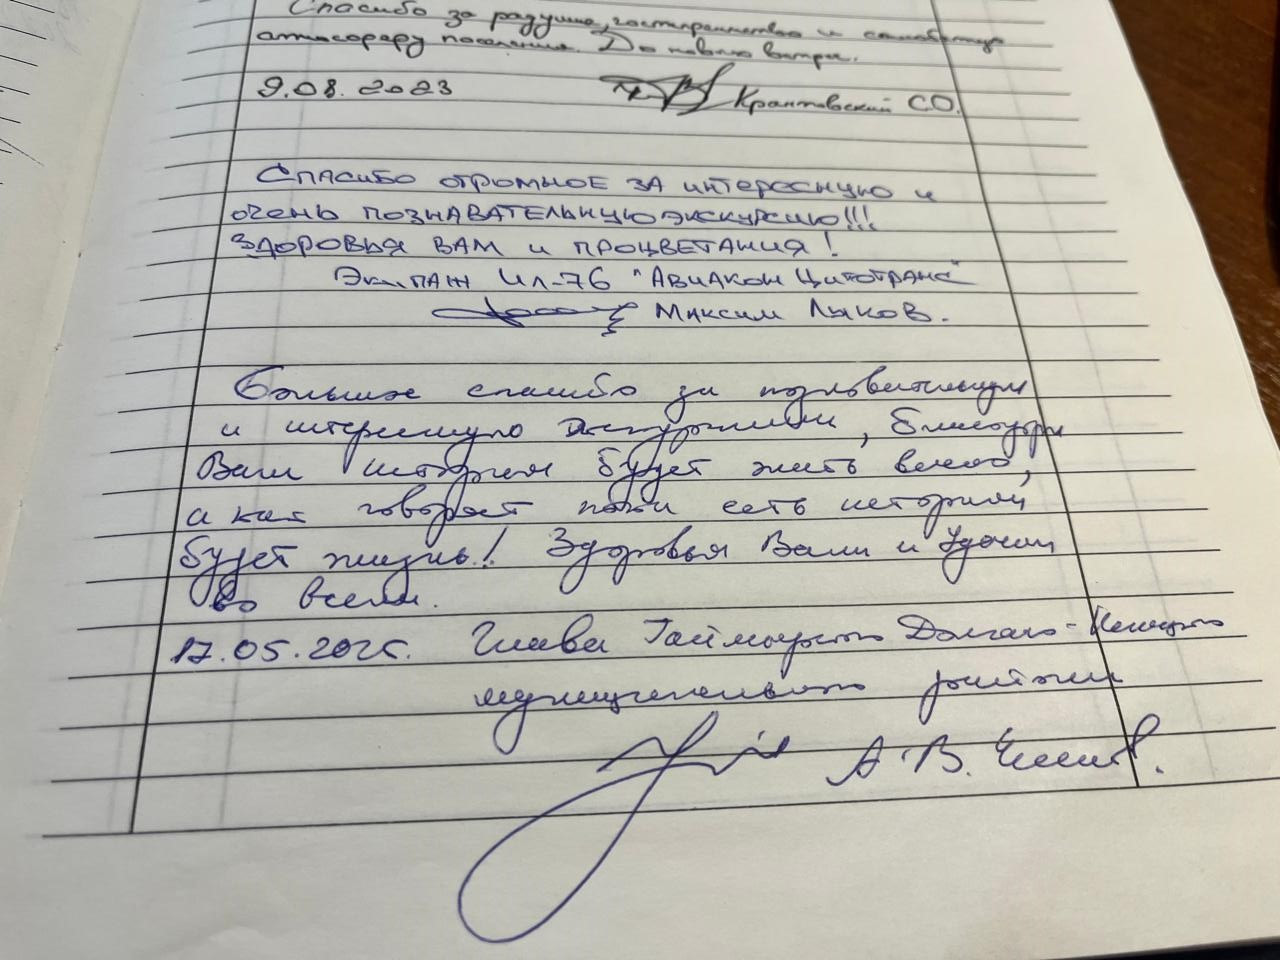 Спасибо за радушие, гостеприимство и
атмосферу поселения. До новых встреч.
9.08.2023 Крантовский С.О.
Спасибо огромное за интересную и
очень познавательную экскурсию!!!
Здоровья Вам и процветания!
Экипаж Ил-76 "Авиакон Цитотранс"
Максим Лыков.
Большое спасибо за познавательную
и интересную экскурсию, благодаря
Вам история будет жить вечно,
а как говорят пока есть история
будет жизнь! Здоровья Вам и Удачи
во всем.
17.05.2025г. Глава Таймырского Долгано-Ненецкого
муниципального района
А.В.